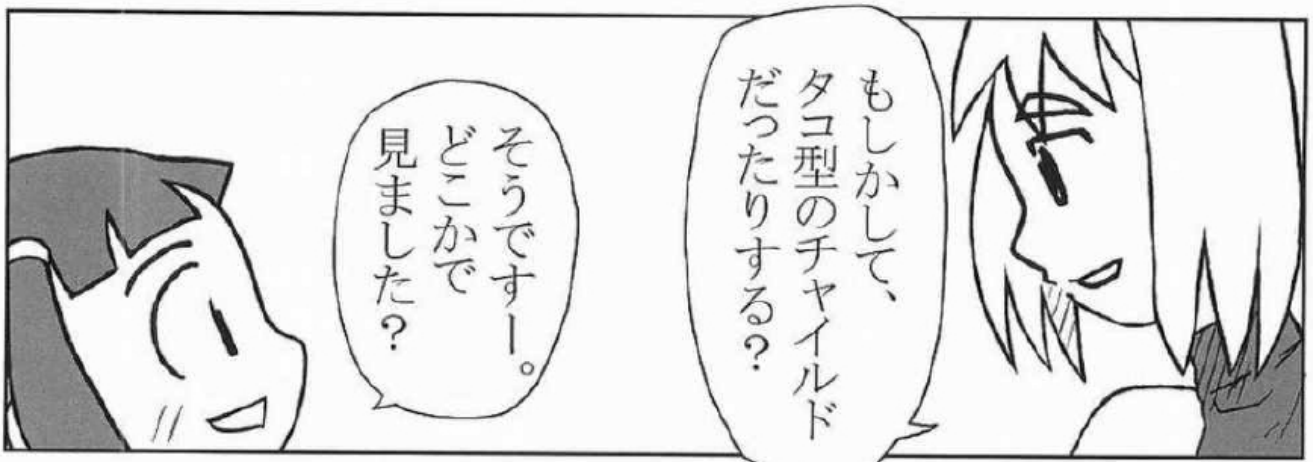 もしかして、
タコ型のチャイルド
だったりする？
そうですー。
どこかで
見ました？